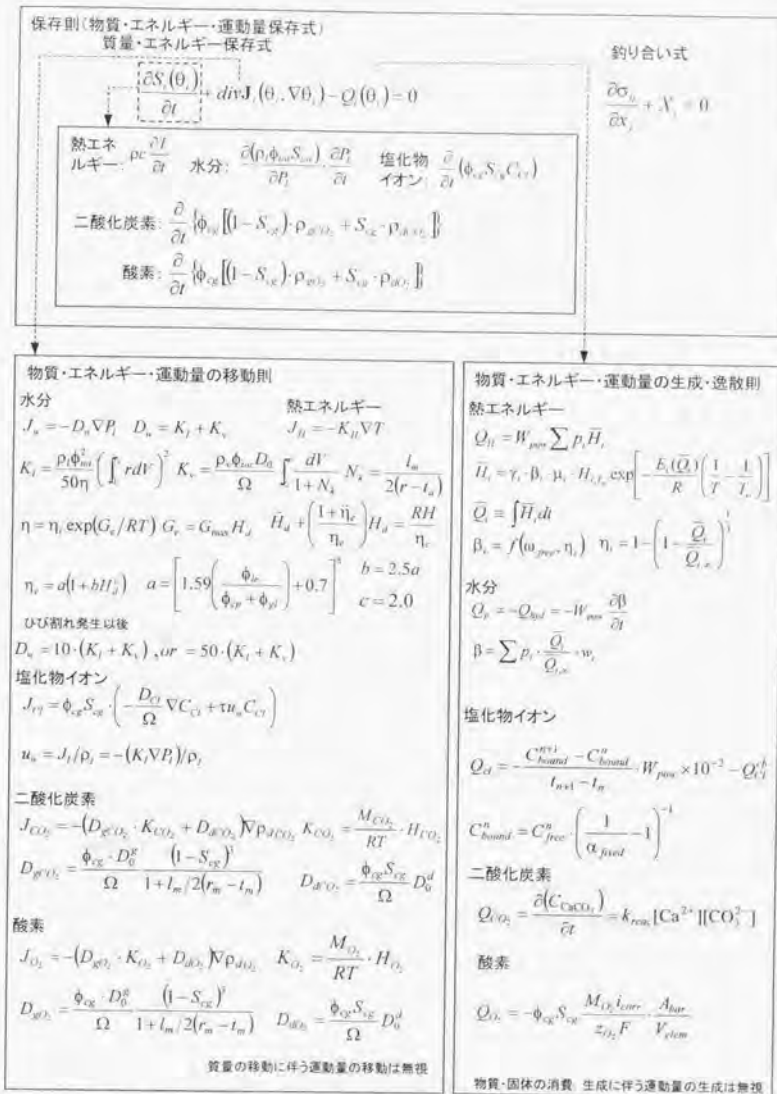 保存則(物質・エネルギー・運動量保存式)
質量・エネルギー保存式
∂S_i(θ_i)/∂t + divJ_i(θ_i, ∇θ_i) − Q_i(θ_i) = 0
釣り合い式
∂σ_ij/∂x_j + X_i = 0
熱エネルギー: ρc ∂T/∂t
水分: ∂(ρ_l φ_tot S_tot)/∂P_l · ∂P_l/∂t
塩化物イオン: ∂/∂t (φ_cg S_cg C_Cl)
二酸化炭素: ∂/∂t {φ_cg[(1 − S_cg)·ρ_gCO₂ + S_cg·ρ_dCO₂]}
酸素: ∂/∂t {φ_cg[(1 − S_cg)·ρ_gO₂ + S_cg·ρ_dO₂]}
物質・エネルギー・運動量の移動則
水分
J_w = −D_w∇P_l D_w = K_l + K_v
熱エネルギー
J_H = −K_H∇T
K_l = ρ_l φ_tot²/50η (∫ rdV)² K_v = ρ_v φ_tot D_0/Ω ∫ dV/(1 + N_k) N_k = l_m/2(r − t_a)
η = η_i exp(G_e/RT) G_e = G_max H_d Ḣ_d + ((1 + η̇_e)/η_e)H_d = RH/η_e
η_e = a(1 + bH_d^c) a = [1.59(φ_lr/(φ_cp + φ_gl)) + 0.7] b = 2.5a
c = 2.0
ひび割れ発生以後
D_w = 10·(K_l + K_v) ,or = 50·(K_l + K_v)
塩化物イオン
J_Cl = φ_cg S_cg·(−D_Cl/Ω ∇C_Cl + τu_w C_Cl)
u_w = J_l/ρ_l = −(K_l∇P_l)/ρ_l
二酸化炭素
J_CO₂ = −(D_gCO₂·K_CO₂ + D_dCO₂)∇ρ_dCO₂ K_CO₂ = M_CO₂/RT · H_CO₂
D_gCO₂ = φ_cg·D_0^g/Ω (1 − S_cg)³/(1 + l_m/2(r_m − t_m)) D_dCO₂ = φ_cg S_cg/Ω D_0^d
酸素
J_O₂ = −(D_gO₂·K_O₂ + D_dO₂)∇ρ_dO₂ K_O₂ = M_O₂/RT · H_O₂
D_gO₂ = φ_cg·D_0^g/Ω · (1 − S_cg)³/(1 + l_m/2(r_m − t_m)) D_dO₂ = φ_cg S_cg/Ω D_0^d
質量の移動に伴う運動量の移動は無視
物質・エネルギー・運動量の生成・逸散則
熱エネルギー
Q_H = W_pow ∑ p_i H̄_i
H̄_i = γ_i·β_i·μ_i·H_i,T₀ exp[−E_i(Q̄_i)/R (1/T − 1/T_o)]
Q̄_i ≡ ∫H̄_i dt
β_i = f(ω_free, η_i) η_i = 1 − (1 − Q̄_i/Q̄_i,∞)^(1/3)
水分
Q_p = −Q_hyd = −W_pow ∂β/∂t
β = ∑ p_i · Q̄_i/Q̄_i,∞ · w_i
塩化物イオン
Q_cl = −(C_bound^(n+1) − C_bound^n)/(t_n+1 − t_n) · W_pow × 10⁻² − Q_Cl^cb
C_bound^n = C_free^n·(1/α_fixed − 1)⁻¹
二酸化炭素
Q_CO₂ = ∂(C_CaCO₃)/∂t = k_reac[Ca²⁺][CO₃²⁻]
酸素
Q_O₂ = −φ_cg S_cg M_O₂ i_corr/z_O₂ F · A_bar/V_elem
物質・固体の消費 生成に伴う運動量の生成は無視